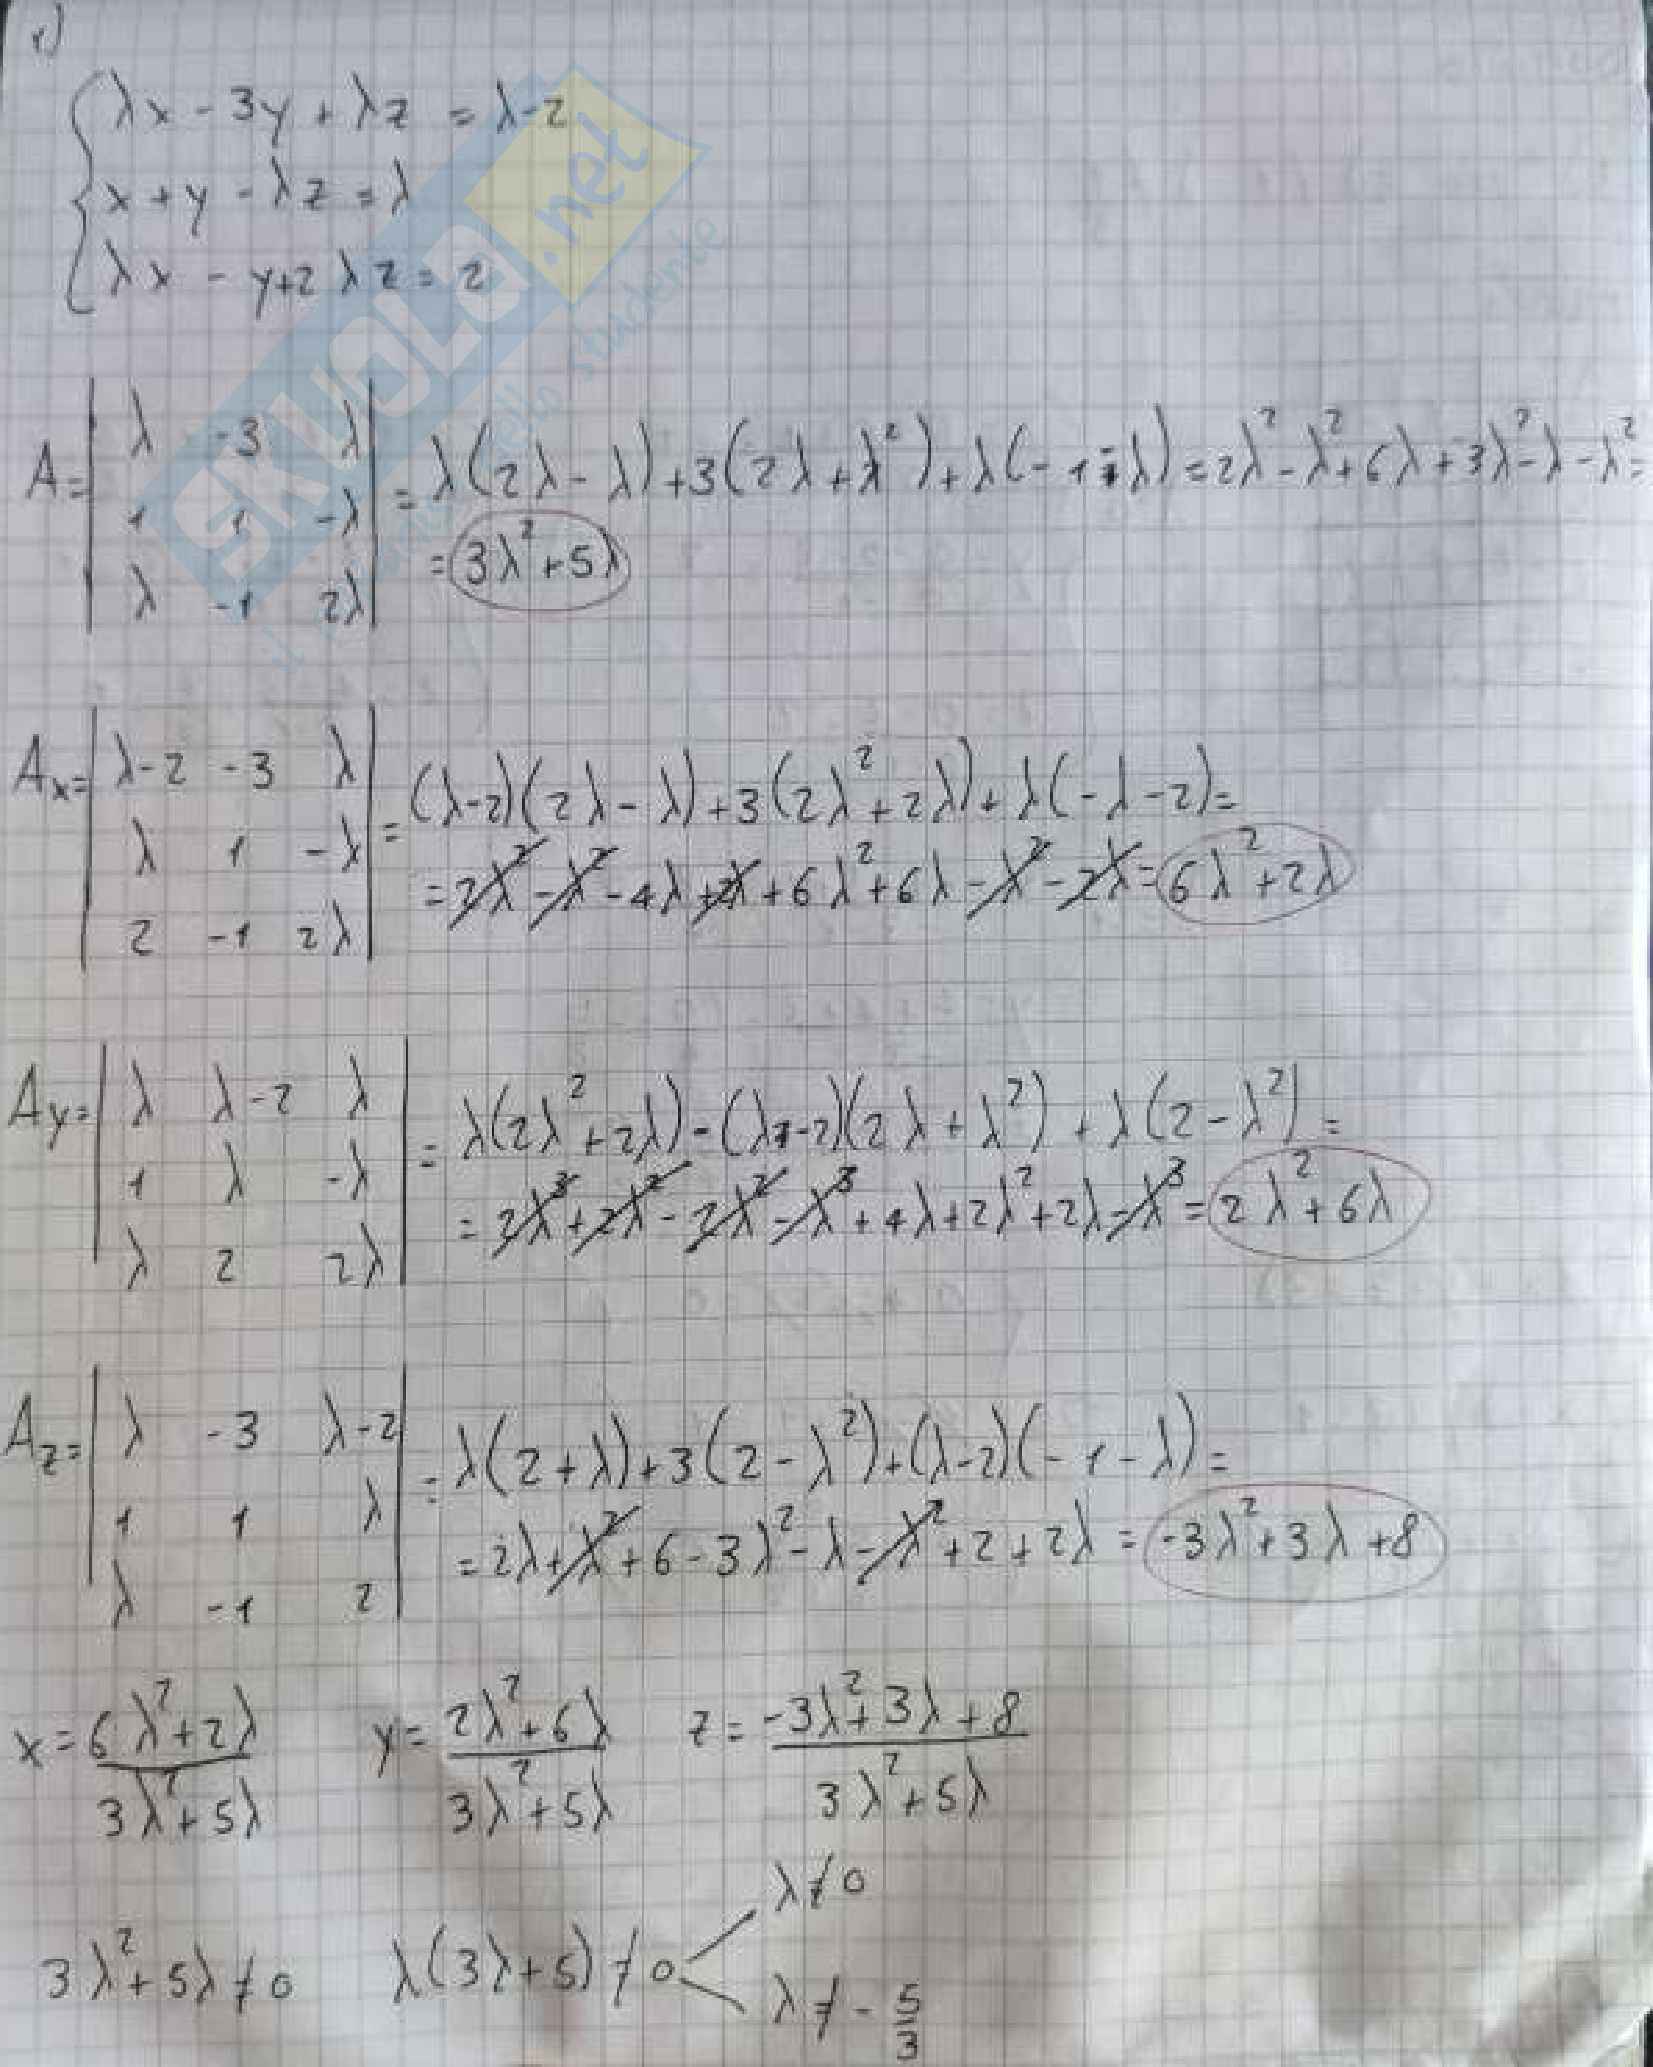 1)
λx - 3y + λz = λ-2
x + y - λz = λ
λx - y+2λz = 2
SKUOLA.net
A= | λ -3 λ | = λ(2λ - λ)+3(2λ+λ²)+λ(-1-λ) = 2λ²-λ²+6λ+3λ²-λ-λ²=
1 1 -λ
= 3λ²+5λ
λ -1 2λ
Ax= | λ-2 -3 λ | = (λ-2)(2λ-λ)+3(2λ²+2λ)+λ(-λ-2)=
λ 1 -λ
= 2λ²-λ²-4λ+2λ+6λ²+6λ-λ²-2λ = 6λ²+2λ
2 -1 2λ
Ay= | λ λ-2 λ | = λ(2λ²+2λ)-(λ-2)(2λ+λ²)+λ(2-λ²)=
1 λ -λ
= 2λ³+2λ²-2λ²-λ³+4λ+2λ²+2λ-λ³ = 2λ²+6λ
λ 2 2λ
Az= | λ -3 λ-2 | = λ(2+λ)+3(2-λ²)+(λ-2)(-1-λ)=
1 1 λ
= 2λ+λ²+6-3λ²-λ-λ²+2+2λ = -3λ²+3λ+8
λ -1 2
x = (6λ²+2λ)/(3λ²+5λ) y = (2λ²+6λ)/(3λ²+5λ) z = (-3λ²+3λ+8)/(3λ²+5λ)
λ≠0
3λ²+5λ≠0 λ(3λ+5)≠0
λ≠-5/3